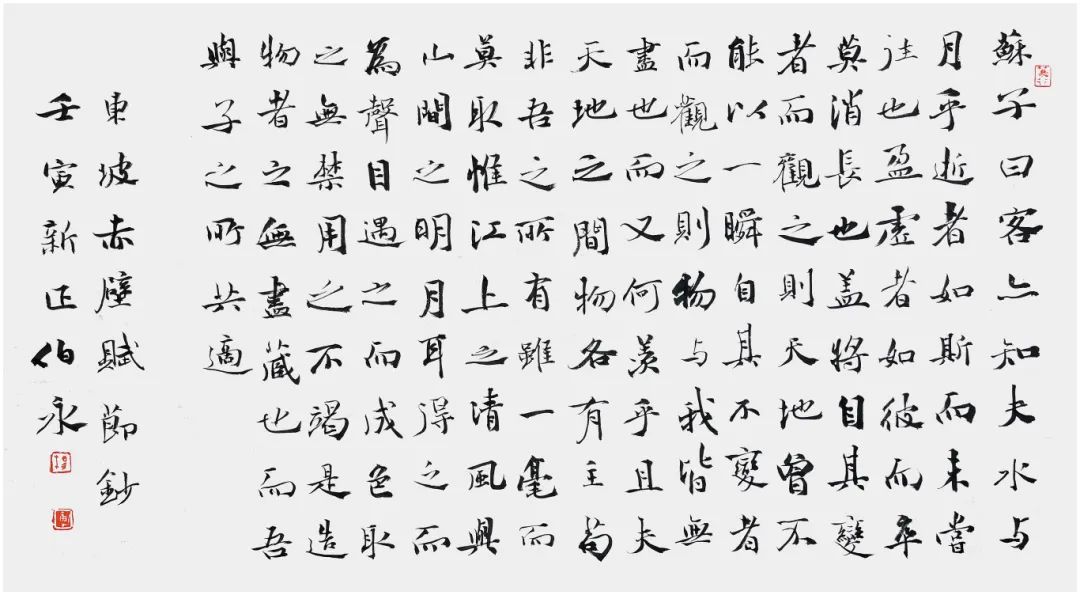 蘇子曰客亦知夫水与
月乎逝者如斯而未嘗
往也盈虛者如彼而卒
莫消長也盖將自其變
者而觀之則天地曾不
能以一瞬自其不變者
而觀之則物与我皆無
盡也而又何羨乎且夫
天地之間物各有主苟
非吾之所有雖一毫而
莫取惟江上之清風與
山間之明月耳得之而
為聲目遇之而成色取
之無禁用之不竭是造
物者之無盡藏也而吾
與子之所共適
東坡赤壁賦節鈔
壬寅新正伯永